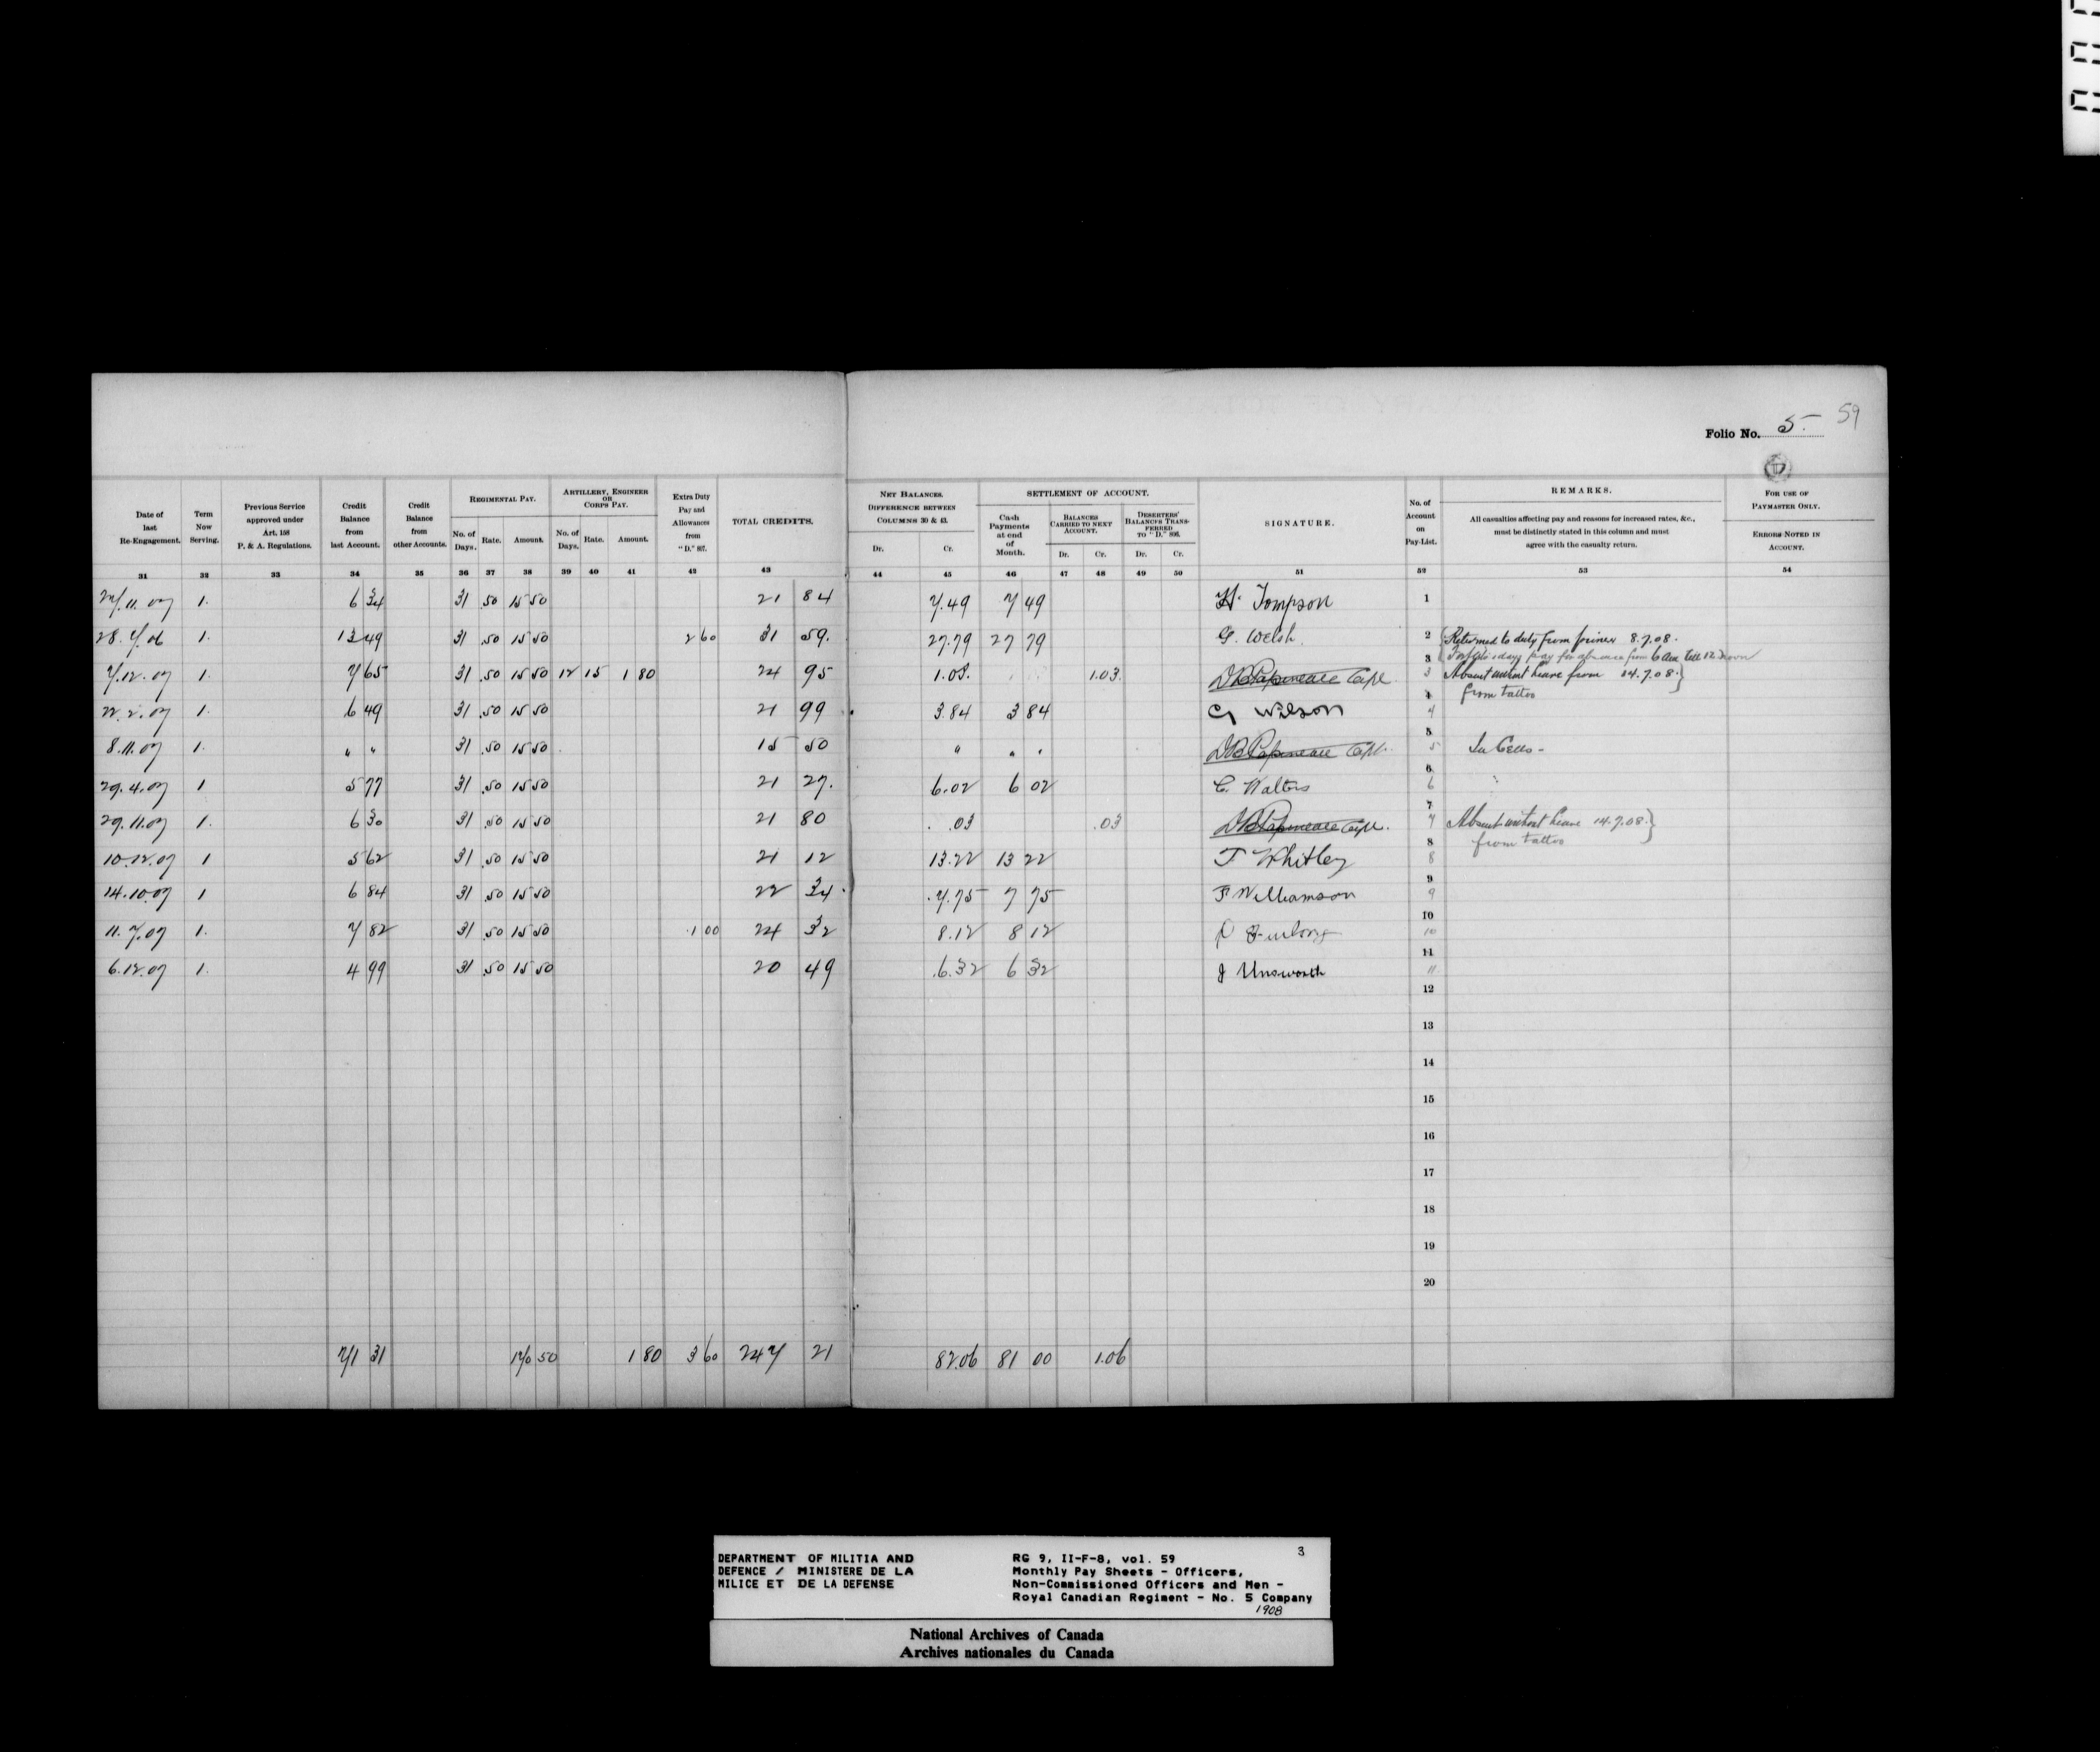 Folio No. 5. 59
Date of last Re-Engagement. 31
Term Now Serving. 32
Previous Service approved under Art. 158 P. & A. Regulations. 33
Credit Balance from last Account. 34
Credit Balance from other Accounts. 35
REGIMENTAL PAY. No. of Days. 36 Rate. 37 Amount. 38
ARTILLERY, ENGINEER OR CORPS PAY. No. of Days. 39 Rate. 40 Amount. 41
Extra Duty Pay and Allowances from "D." 807. 42
TOTAL CREDITS. 43
NET BALANCES. DIFFERENCE BETWEEN COLUMNS 30 & 43. Dr. 44 Cr. 45
SETTLEMENT OF ACCOUNT. Cash Payments at end of Month. 46
BALANCES CARRIED TO NEXT ACCOUNT. Dr. 47 Cr. 48
DESERTERS' BALANCES TRANSFERRED TO "D." 806. Dr. 49 Cr. 50
SIGNATURE. 51
No. of Account on Pay-List. 52
REMARKS. All casualties affecting pay and reasons for increased rates, &c., must be distinctly stated in this column and must agree with the casualty return. 53
FOR USE OF PAYMASTER ONLY. ERRORS NOTED IN ACCOUNT. 54
11.07 1. 6 34 31 .50 15 50 21 84 7.49 7 49 H. Tompson 1
28.7.06 1. 13 49 31 .50 15 50 2 60 31 59. 27.79 27 79 G. Welsh. 2 Returned to duty from 8.7.08.
days pay for absence from 6 am till 12 noon
7.12.07 1. 7 65 31 .50 15 50 12 15 1 80 24 95 1.03. 1.03. DB Papineau Capt. 3 3 Absent without leave from 14.7.08.
from tattoo
22.2.07 1. 6 49 31 .50 15 50 21 99 3.84 3 84 G Wilson 4 4
8.11.07 1. " " 31 .50 15 50 15 50 " " " DB Papineau Capt. 5 5 In Cells -
29.4.07 1 5 77 31 .50 15 50 21 27. 6.02 6 02 C. Walters 6 6
29.11.07 1. 6 30 31 .50 15 50 21 80 .03 .03 DB Papineau Capt. 7 7 Absent without leave 14.7.08.
from tattoo
10.12.07 1 5 62 31 .50 15 50 21 12 13.22 13 22 F Whitley 8 8
14.10.07 1 6 84 31 .50 15 50 22 34 7.75 7 75 F Williamson 9 9
11.7.07 1. 7 82 31 .50 15 50 1 00 24 32 8.12 8 12 Furlong 10 10
6.12.07 1. 4 99 31 .50 15 50 20 49 6.32 6 32 J Unsworth 11 11
12
13
14
15
16
17
18
19
20
71 31 170 50 1 80 3 60 247 21 82.06 81 00 1.06
DEPARTMENT OF MILITIA AND
DEFENCE / MINISTERE DE LA
MILICE ET DE LA DEFENSE
RG 9, II-F-8, vol. 59 3
Monthly Pay Sheets - Officers,
Non-Commissioned Officers and Men -
Royal Canadian Regiment - No. 5 Company
1908
National Archives of Canada
Archives nationales du Canada